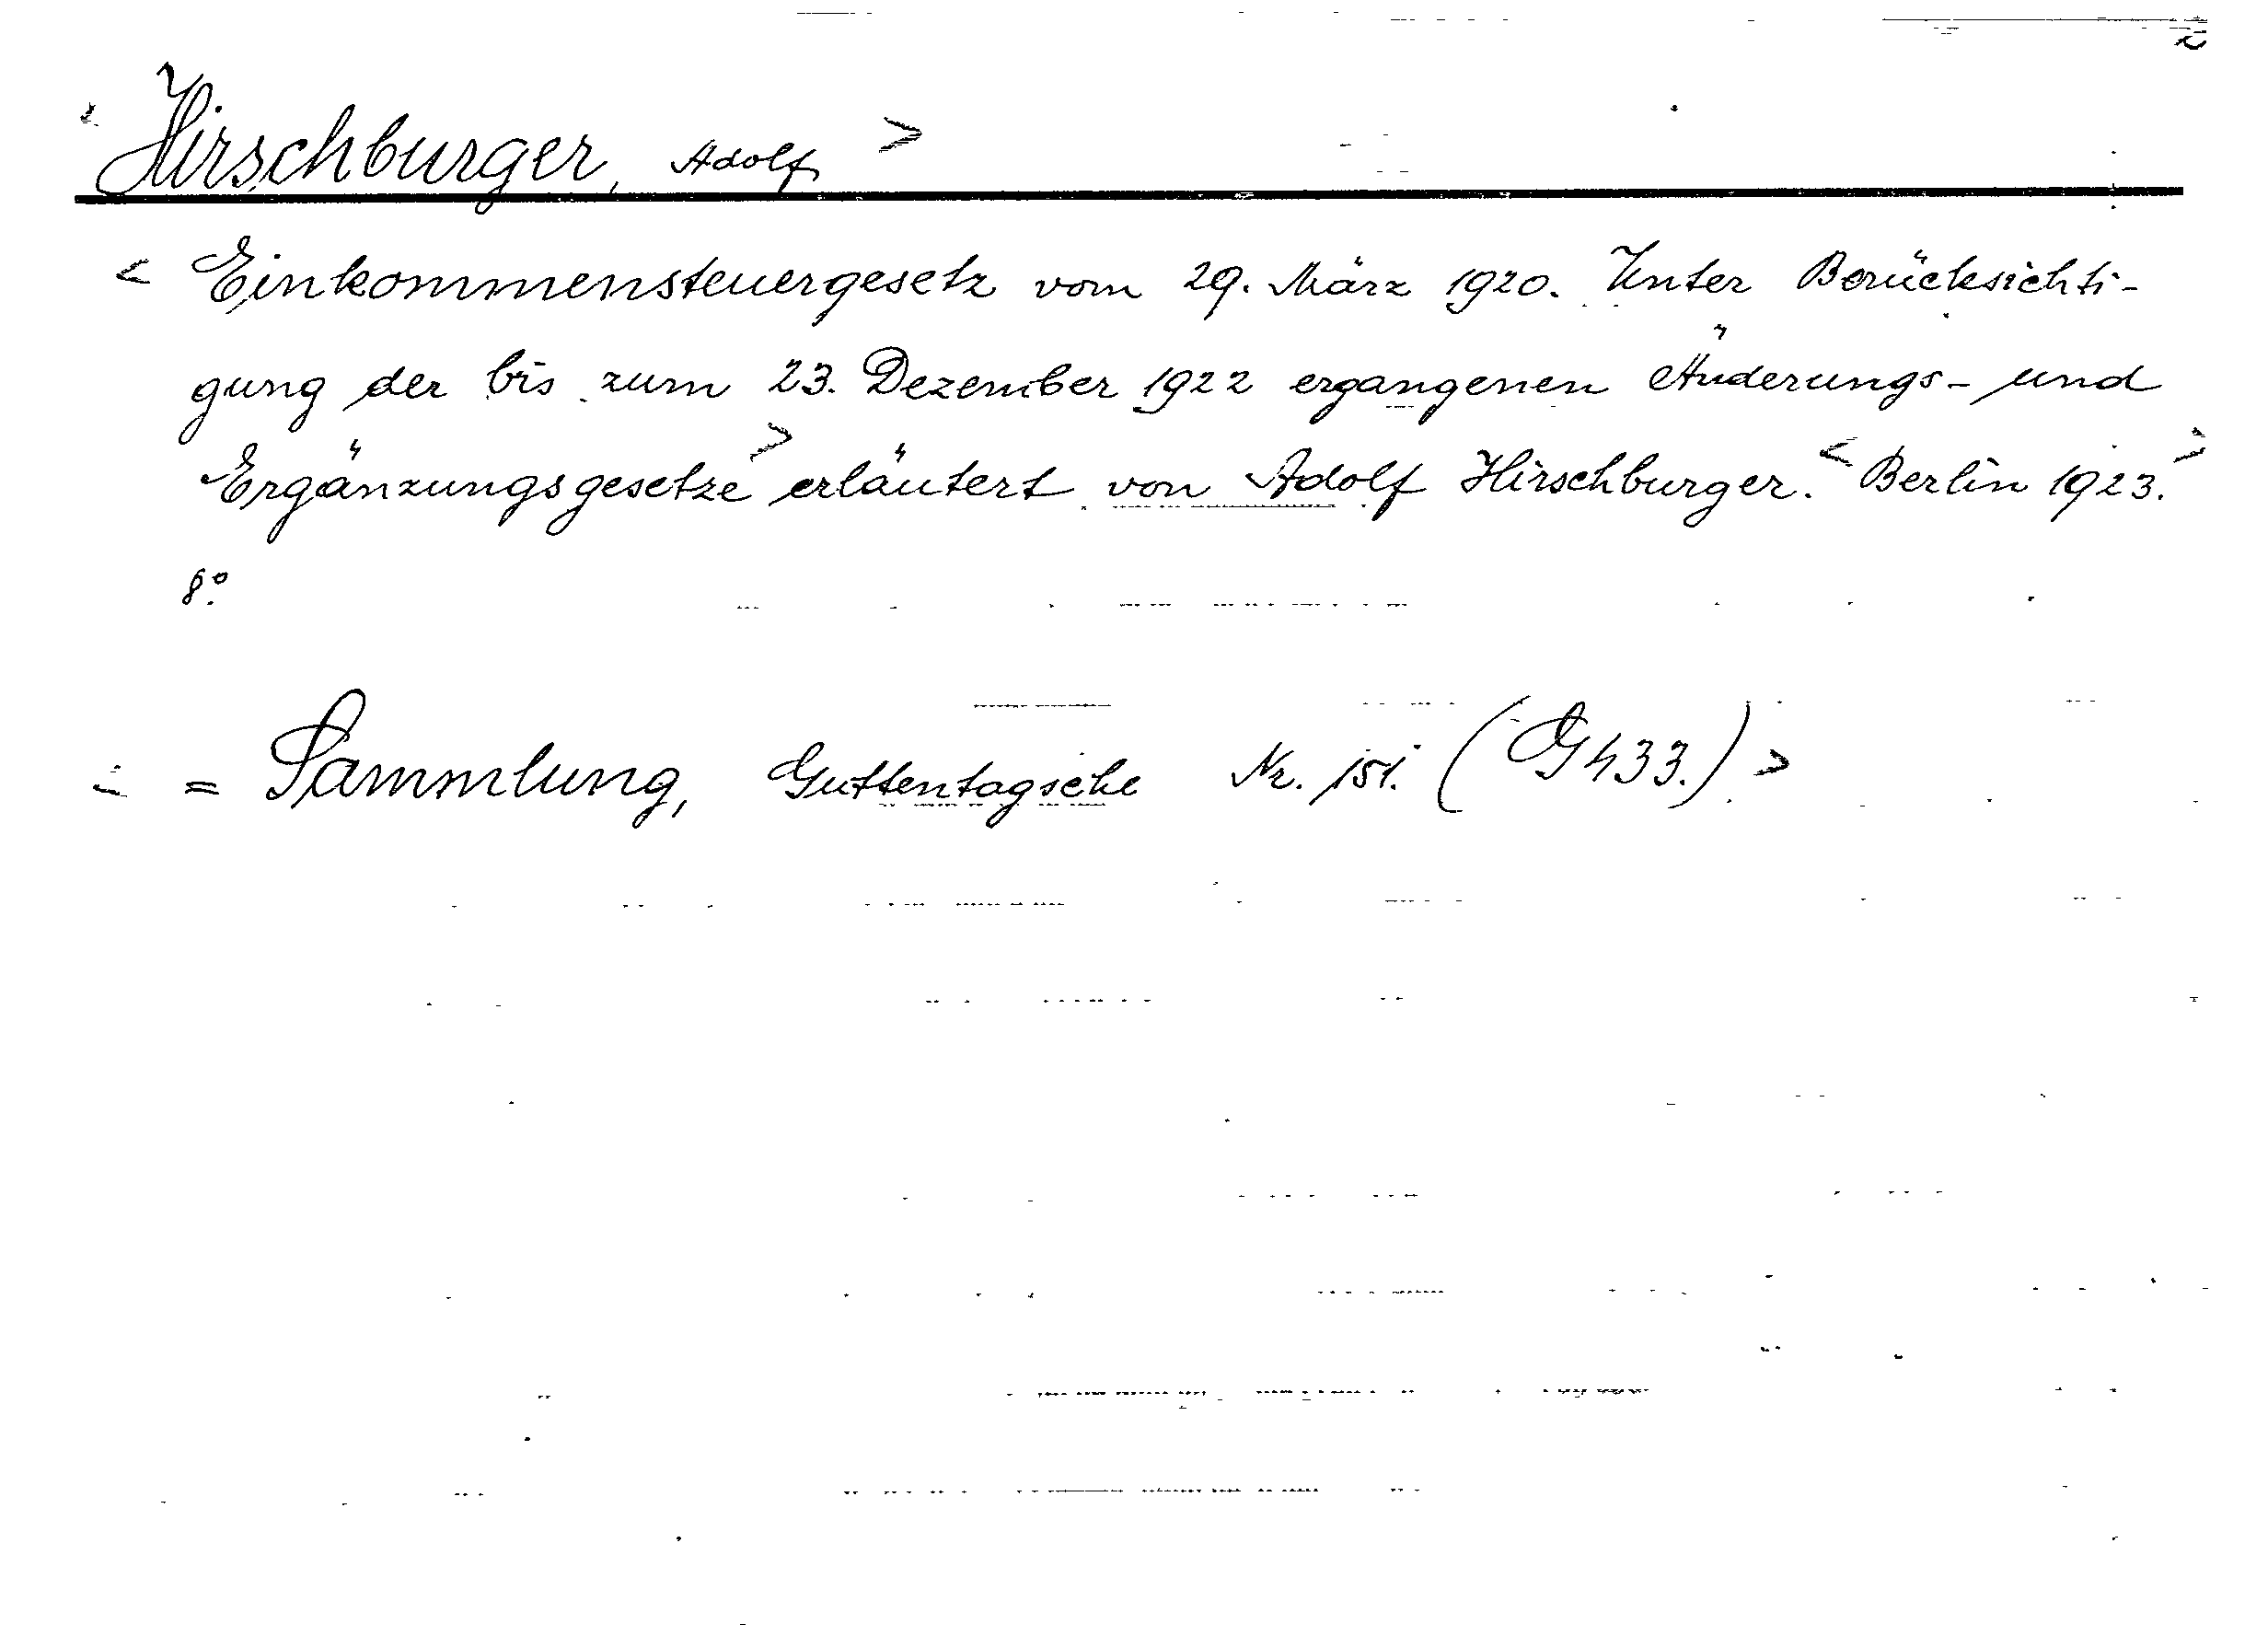 < Hirschburger, Adolf >
< Einkommensteuergesetz vom 29. März 1920. Unter Berücksichti-
gung der bis zum 23. Dezember 1922 ergangenen Änderungs- und
Ergänzungsgesetze > erläutert von Adolf Hirschburger. < Berlin 1923. >
8°.
< = Sammlung, Guttentagsche Nr. 151. (G 433.) >